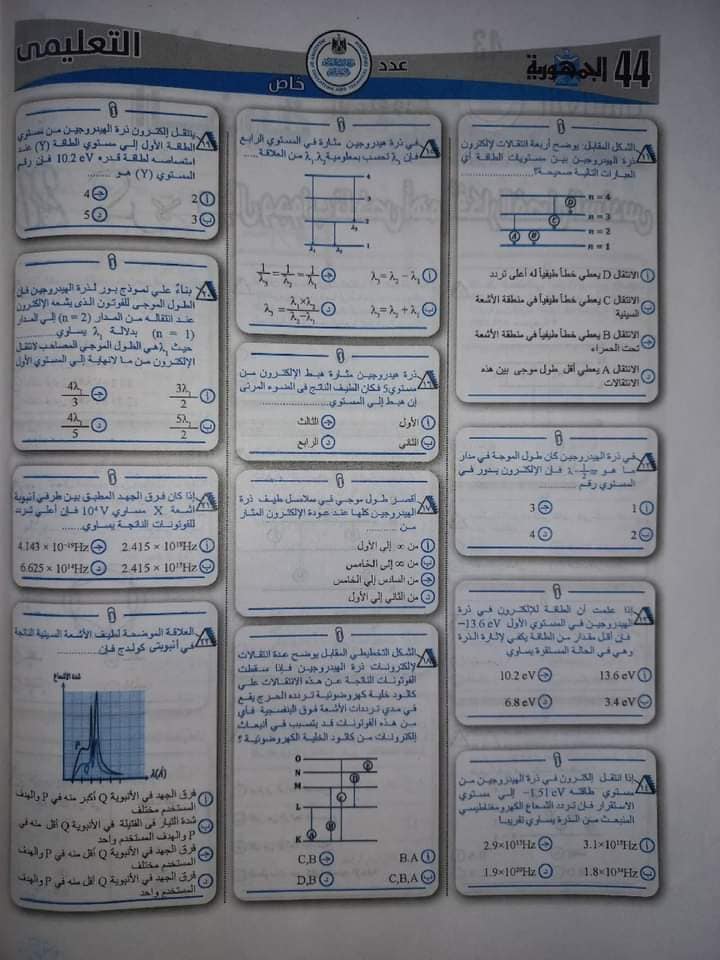 44 الجمهورية
عدد
خاص
التعليمى
الشكل المقابل: يوضح أربعة انتقالات لإلكترون
ذرة الهيدروجين بين مستويات الطاقة أي
العبارات التالية صحيحة؟
n = 4
n = 3
n = 2
n = 1
D
C
B
A
أ الانتقال D يعطي خطاً طيفياً له أعلى تردد
ب الانتقال C يعطي خطاً طيفياً في منطقة الأشعة
السينية
ج الانتقال B يعطي خطاً طيفياً في منطقة الأشعة
تحت الحمراء
د الانتقال A يعطي أقل طول موجى بين هذه
الانتقالات
في ذرة الهيدروجين كان طول الموجة في مدار
ما هو فإن الإلكترون يدور في
المستوي رقم
أ 1
ج 3
ب 2
د 4
إذا علمت أن الطاقة للإلكترون في ذرة
الهيدروجين في المستوي الأول 13.6 eV−
فإن أقل مقدار من الطاقة يكفي لإثارة الذرة
وهي في الحالة المستقرة يساوي
أ 13.6 eV
ج 10.2 eV
ب 3.4 eV
د 6.8 eV
إذا انتقل إلكترون في ذرة الهيدروجين من
مستوي طاقته 1.51 eV− إلى مستوي
الاستقرار فإن تردد الشعاع الكهرومغناطيسي
المنبعث من الذرة يساوي تقريبا:
أ 3.1×10¹⁵Hz
ج 2.9×10¹⁵Hz
ب 1.8×10³⁴Hz
د 1.9×10²⁰Hz
في ذرة هيدروجين مثارة في المستوي الرابع
فإن λ₃ تحسب بمعلومية λ₂ , λ₁ من العلاقة
4
3
2
1
λ₁
λ₂
λ₃
أ λ₃ = λ₂ − λ₁
ب λ₃ = λ₂ + λ₁
د λ₃ = λ₁×λ₂ / λ₂−λ₁
ذرة هيدروجين مثارة هبط الإلكترون من
مستوي5 فكان الطيف الناتج فى الضوء المرئى
إن هبط إلي المستوي
أ الأول
ج الثالث
ب الثاني
د الرابع
أقصر طول موجي في سلاسل طيف ذرة
الهيدروجين كلها عند عودة الإلكترون المثار
من
أ من ∞ إلي الأول
ب من ∞ إلى الخامس
ج من السادس إلي الخامس
د من الثاني إلي الأول
الشكل التخطيطي المقابل يوضح عدة انتقالات
لإلكترونات ذرة الهيدروجين فإذا سقطت
الفوتونات الناتجة عن هذه الانتقالات علي
كاثود خلية كهروضوئية تردده الحرج يقع
في مدي ترددات الأشعة فوق البنفسجية فأي
من هذه الفوتونات قد يتسبب في انبعاث
إلكترونات من كاثود الخلية الكهروضوئية ؟
O
N
M
L
K
A
B
C
D
E
أ B.A
ج C,B
ب C,B,A
د D,B
ينتقل إلكترون ذرة الهيدروجين من مستوي
الطاقة الأول إلي مستوي الطاقة (Y) عند
امتصاصه لطاقة قدره 10.2 eV فإن رقم
المستوي (Y) هو
أ 2
ج 4
ب 3
د 5
بناءً على نموذج بور لذرة الهيدروجين فإن
الطول الموجي للفوتون الذى يشعه الإلكترون
عند انتقاله من المدار (n = 2) إلي المدار
(n = 1) بدلالة λ₁ يساوي
حيث λ₁هي الطول الموجي المصاحب لانتقال
الإلكترون من ما لانهاية إلي المستوي الأول
أ 3λ₁/2
ج 4λ₁/3
ب 5λ₁/2
د 4λ₁/5
إذا كان فرق الجهد المطبق بين طرفي أنبوبة
أشعة X مساوي 10⁴ V فإن أعلي تردد
للفوتونات الناتجة يساوي
أ 2.415 × 10¹⁸Hz
ج 4.143 × 10⁻¹⁹Hz
ب 2.415 × 10¹⁵Hz
د 6.625 × 10¹⁴Hz
العلاقة الموضحة لطيف الأشعة السينية الناتجة
في أنبوبتى كولدج فإن
شدة الإشعاع
P
Q
λ(Å)
أ فرق الجهد في الأنبوبة Q أكبر منه في P والهدف
المستخدم مختلف
ب شدة التيار فى الفتيلة في الأنبوبة Q أقل منه في
P والهدف المستخدم واحد
ج فرق الجهد في الأنبوبة Q أقل منه في P والهدف
المستخدم مختلف
د فرق الجهد في الأنبوبة Q أقل منه في P والهدف
المستخدم واحد